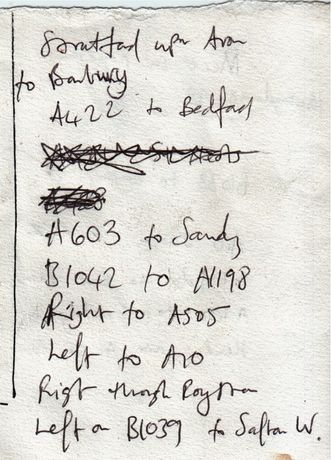 Stratford upon Avon
to Banbury
A422 to Bedford
A603 to Sandy
B1042 to A1198
Right to A505
Left to A10
Right through Royston
Left on B1039 to Saffron W.